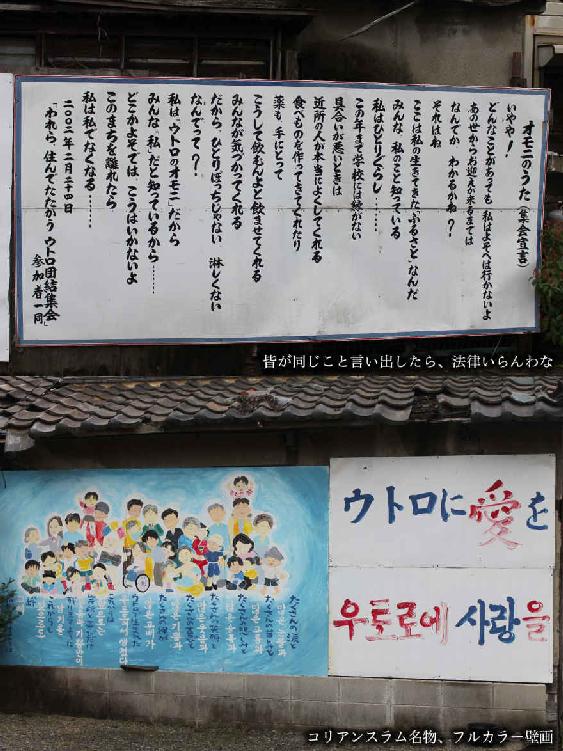 オモニのうた(集会宣言)
いやや!
どんなことがあっても 私はよそへは行かないよ
あの世からお迎えが来るまでは
なんでか わかるかね?
それはね
ここは私の生きてきた「ふるさと」なんだ
みんな、私のことを知っている
私はひとりぐらし……
この年まで学校には縁がない
具合いが悪いときは
近所の人が本当によくしてくれる
食べものを作ってきてくれたり
薬も、手にとって
こうして飲むんよと飲ませてくれる
みんなが気づかってくれる
だから、ひとりぼっちじゃない 淋しくない
なんでって?
私は「ウトロのオモニ」だから
みんな、「私」だと知っているから……
どこかよそでは、こうはいかないよ
このまちを離れたら
私は私でなくなる……
二〇〇二年二月二十四日
「われら、住んでたたかう ウトロ団結集会」
参加者一同
皆が同じこと言い出したら、法律いらんわな
ウトロに愛を
우토로에 사랑을
たくさんの涙と
コリアンスラム名物、フルカラー壁画